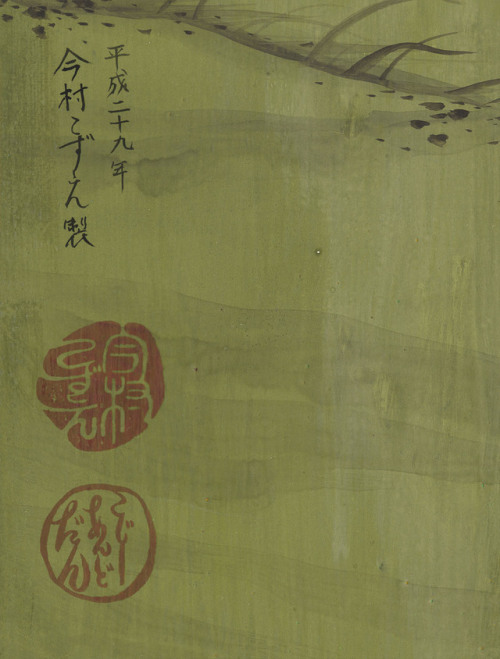 平成二十九年
今村こずゑ製
今村
こずゑ
こじー
あんど
だん